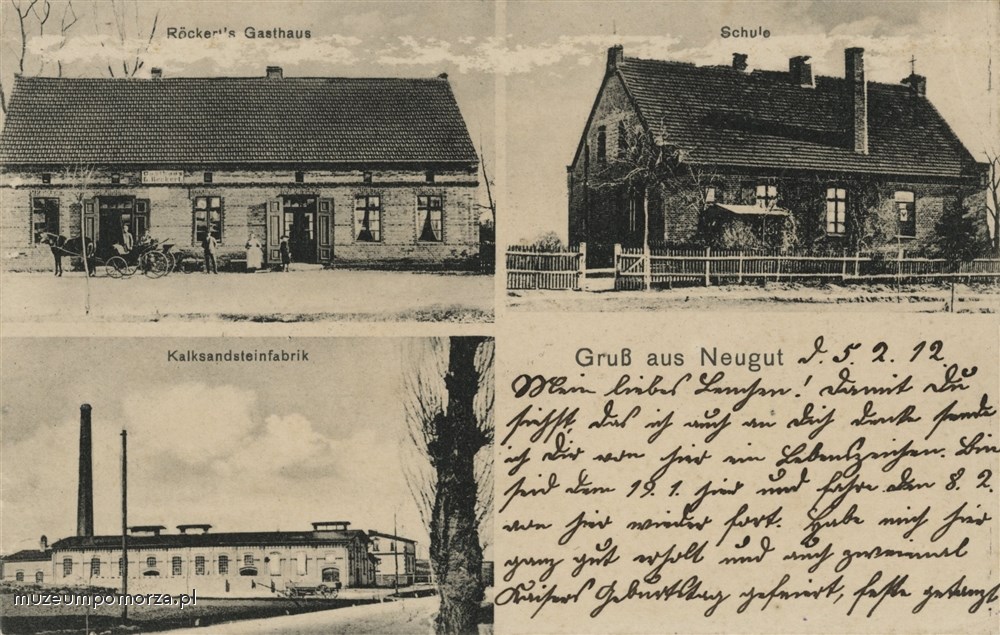 Röckert's Gasthaus
Schule
E. Röckert.
Kalksandsteinfabrik
Gruß aus Neugut d. 5. 2. 12
Mein liebes Lenchen! Damit Du
siehst, das ich auch an Dich denke sende
ich Dir von hier ein Lebenszeichen. Bin
seid dem 19. 1. hier und fahre den 8. 2.
von hier wieder fort. Habe mich hier
ganz gut erholt und auch zweimal
Kaisers Geburtstag gefeiert, feste getanzt
muzeumpomorza.pl